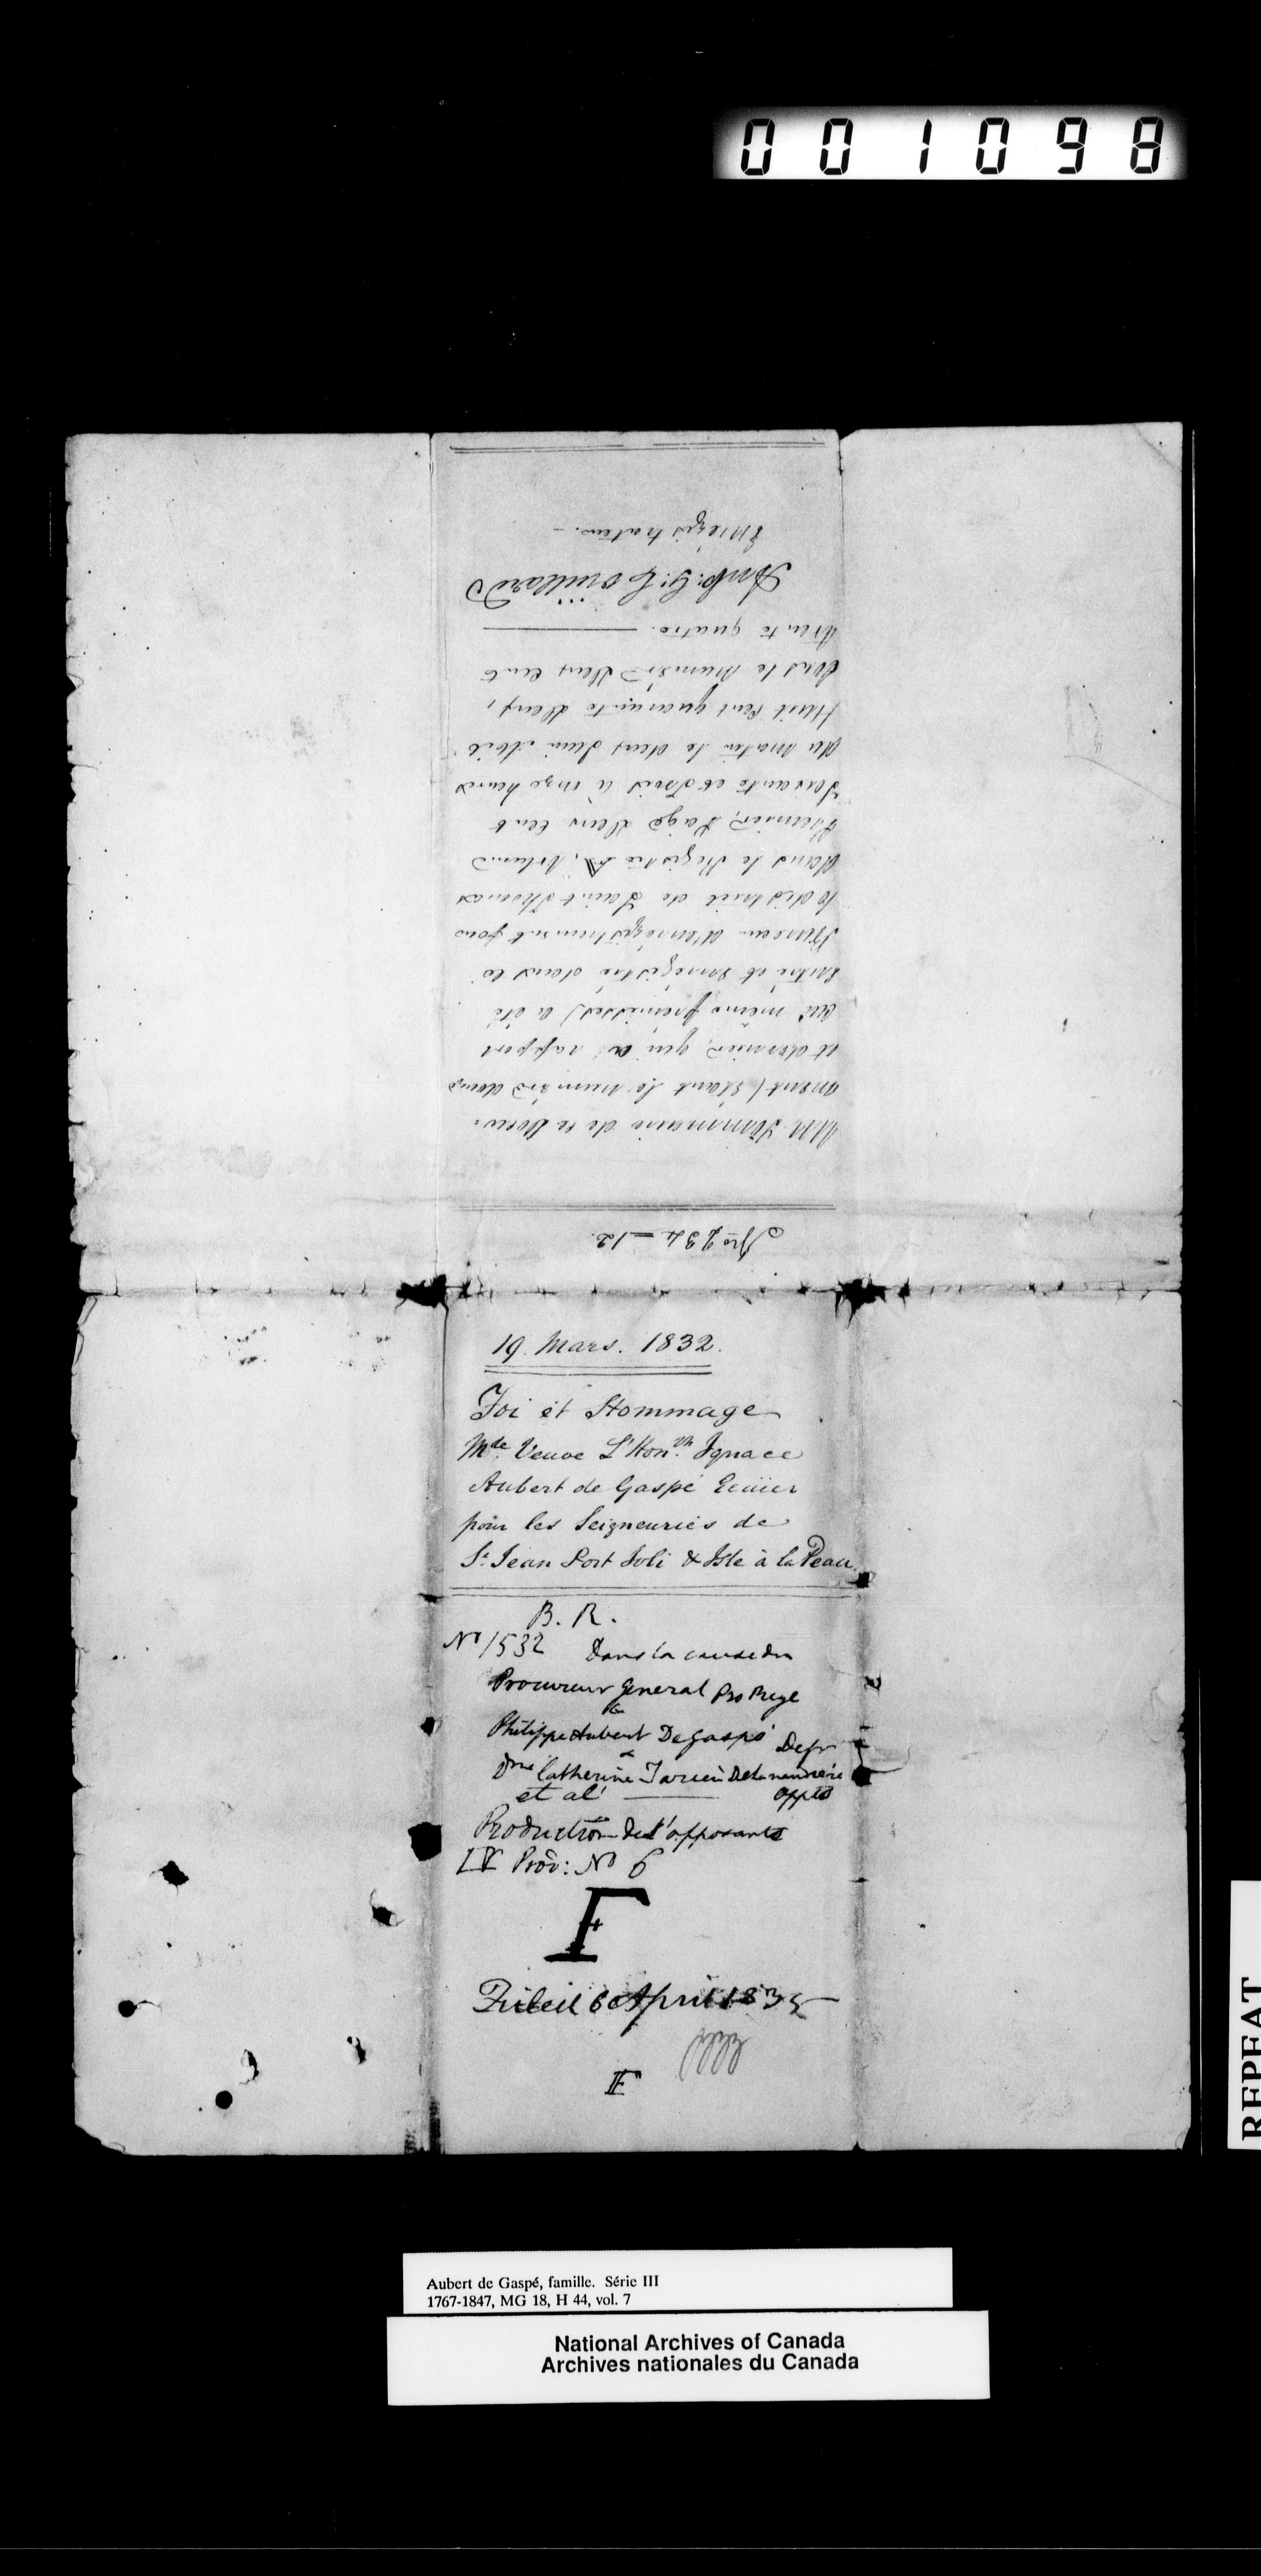 001098
Nro 234 — 12.
UN Sommaire de ce docu=
ment (étant le numéro deux
et dernier, qui a rapport
aux même prémisses) a été
entré et enregistré dans le
Bureau d'enregistrement pour
le district de Saint Thomas
dans le Registre A, Volume
Premier, Page deux cent
soixante et trois à onze heures
du matin le deux Juin
Huit Cent quarante deux,
sous le numéro deux cent
trente quatre.
Ant: G: Couillard
Enrégistrateur.
19. Mars. 1832.
Foi et Hommage
Mde. Veuve L'Honble Ignace
Aubert de Gaspé Ecuier
pour les Seigneuries de
St. Jean Port Joli & Isle à la Peau
B. R.
No 1532 Dans la cause du
Procureur General Pro Rege
vs
Philippe Aubert De Gaspé Defr
&
Dme Catherine Tarieu Delanaudiere
et al oppts
Production des opposants
LV Prod: No 6
F
Fileil 6 April 1835
F
REPEAT
Aubert de Gaspé, famille. Série III
1767-1847, MG 18, H 44, vol. 7
National Archives of Canada
Archives nationales du Canada